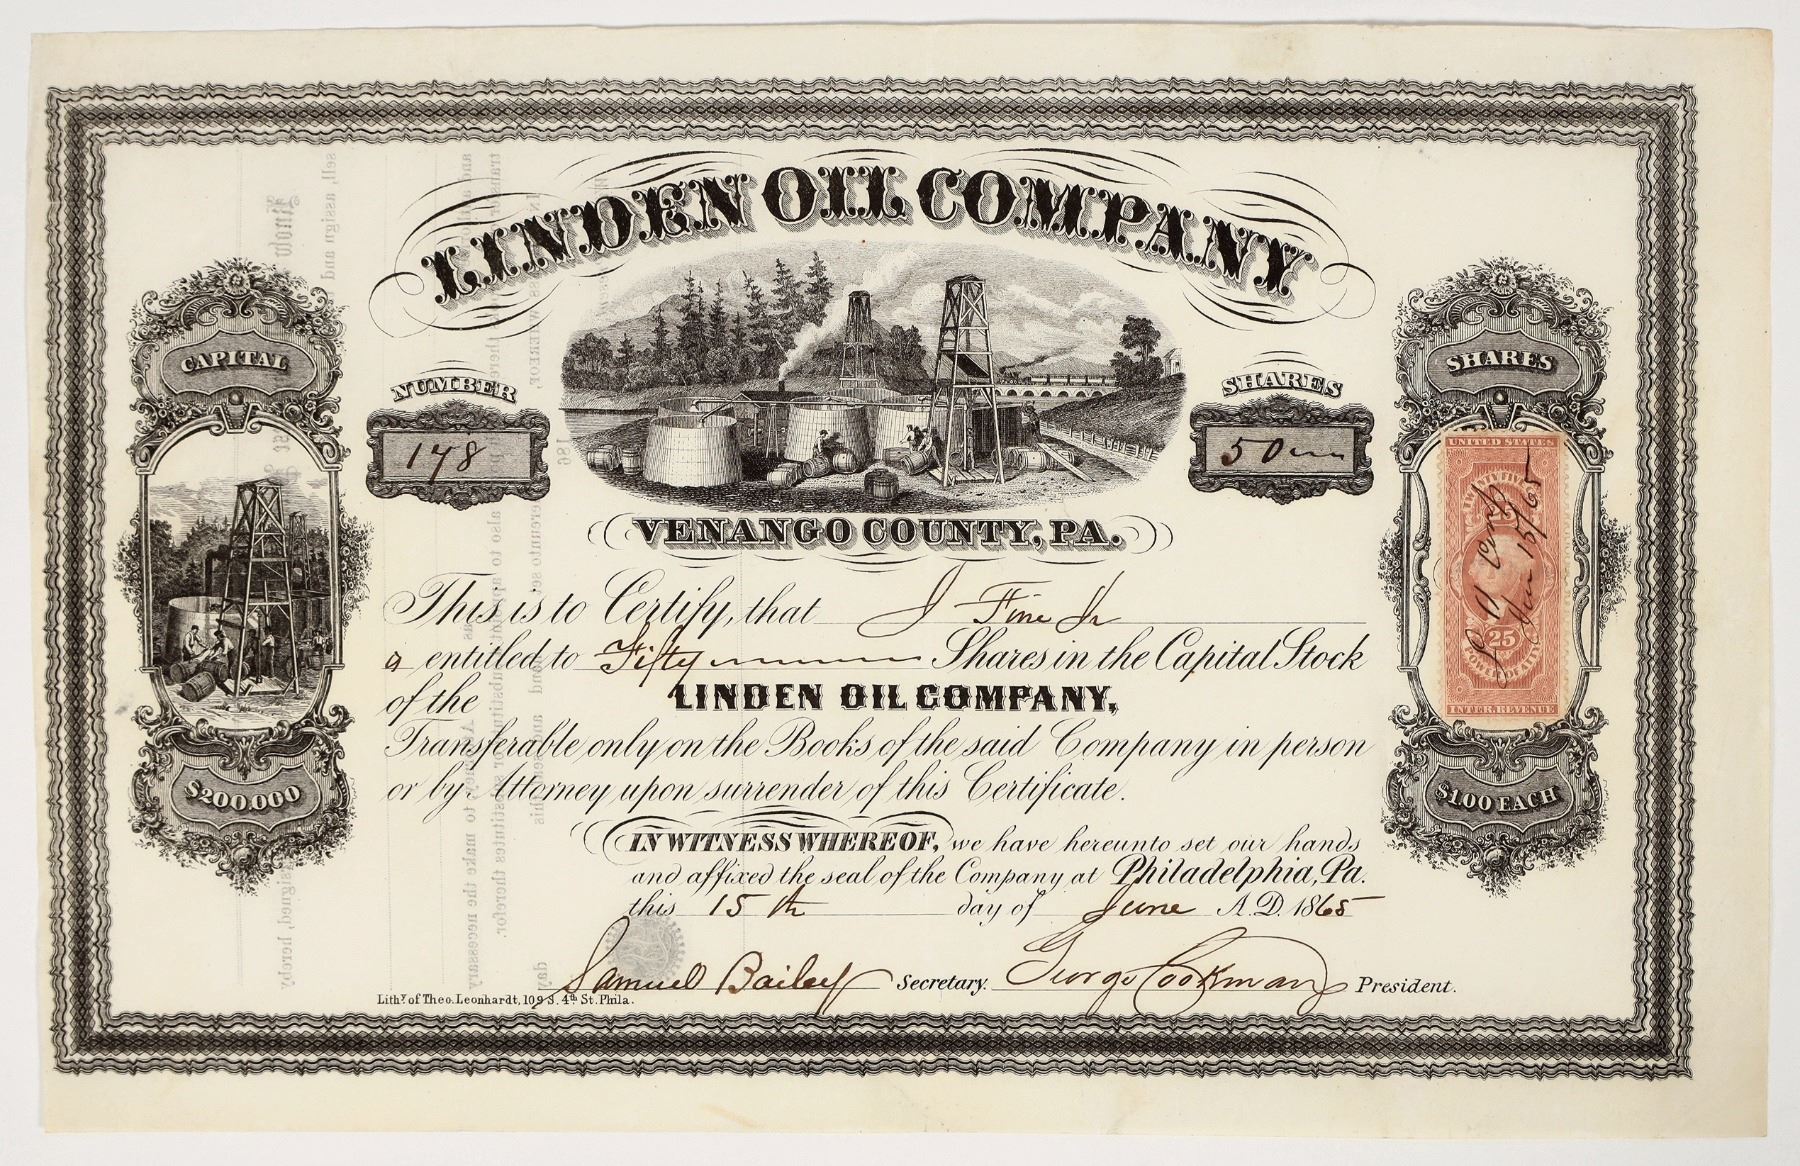 LINDEN OIL COMPANY
CAPITAL
$200.000
NUMBER
178
SHARES
50
SHARES
$1.00 EACH
UNITED STATES
25
POWER OF ATT'Y
INTER. REVENUE
15/65
VENANGO COUNTY, PA.
This is to Certify, that J Fine Jr
is entitled to Fifty Shares in the Capital Stock
of the LINDEN OIL COMPANY,
Transferable only on the Books of the said Company in person
or by Attorney upon surrender of this Certificate.
IN WITNESS WHEREOF, we have hereunto set our hands
and affixed the seal of the Company at Philadelphia, Pa.
this 15 th day of June A.D. 1865
Samuel Bailey Secretary. George Cookman President.
Lithy. of Theo. Leonhardt, 109 S. 4th St. Phila.